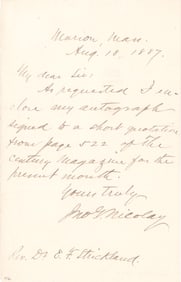 Marion, Mass.
Aug. 18, 1887.
My dear Sir:
As requested I en-
close my autograph
signed to a short quotation
from page 522 of the
Century Magazine for the
present month.
Yours truly
Jno G Nicolay
Rev. Dr E. F. Strickland.